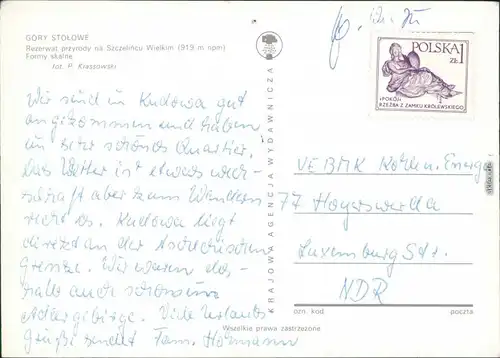 GÓRY STOŁOWE
Rezerwat przyrody na Szczelińcu Wielkim (919 m npm)
Formy skalne
fot. P. Krassowski
Wir sind in Kudowa gut
angekommen und haben
ein sehr schönes Quartier,
das Wetter ist etwas
aber zum Wandern
Kudowa liegt
direkt an der
Grenze. Wir waren des-
halb auch schon im
Adlergebirge. Viele Urlaubs
grüße sendet Fam. Hofmann
KRAJOWA AGENCJA WYDAWNICZA
POLSKA 1
ZŁ
»POKÓJ«
RZEŹBA Z ZAMKU KRÓLEWSKIEGO
VE BMK Kohle u. Energie
77 Hoyerswerda
Luxemburg Str.
NDR
ozn. kod
poczta
Wszelkie prawa zastrzeżone